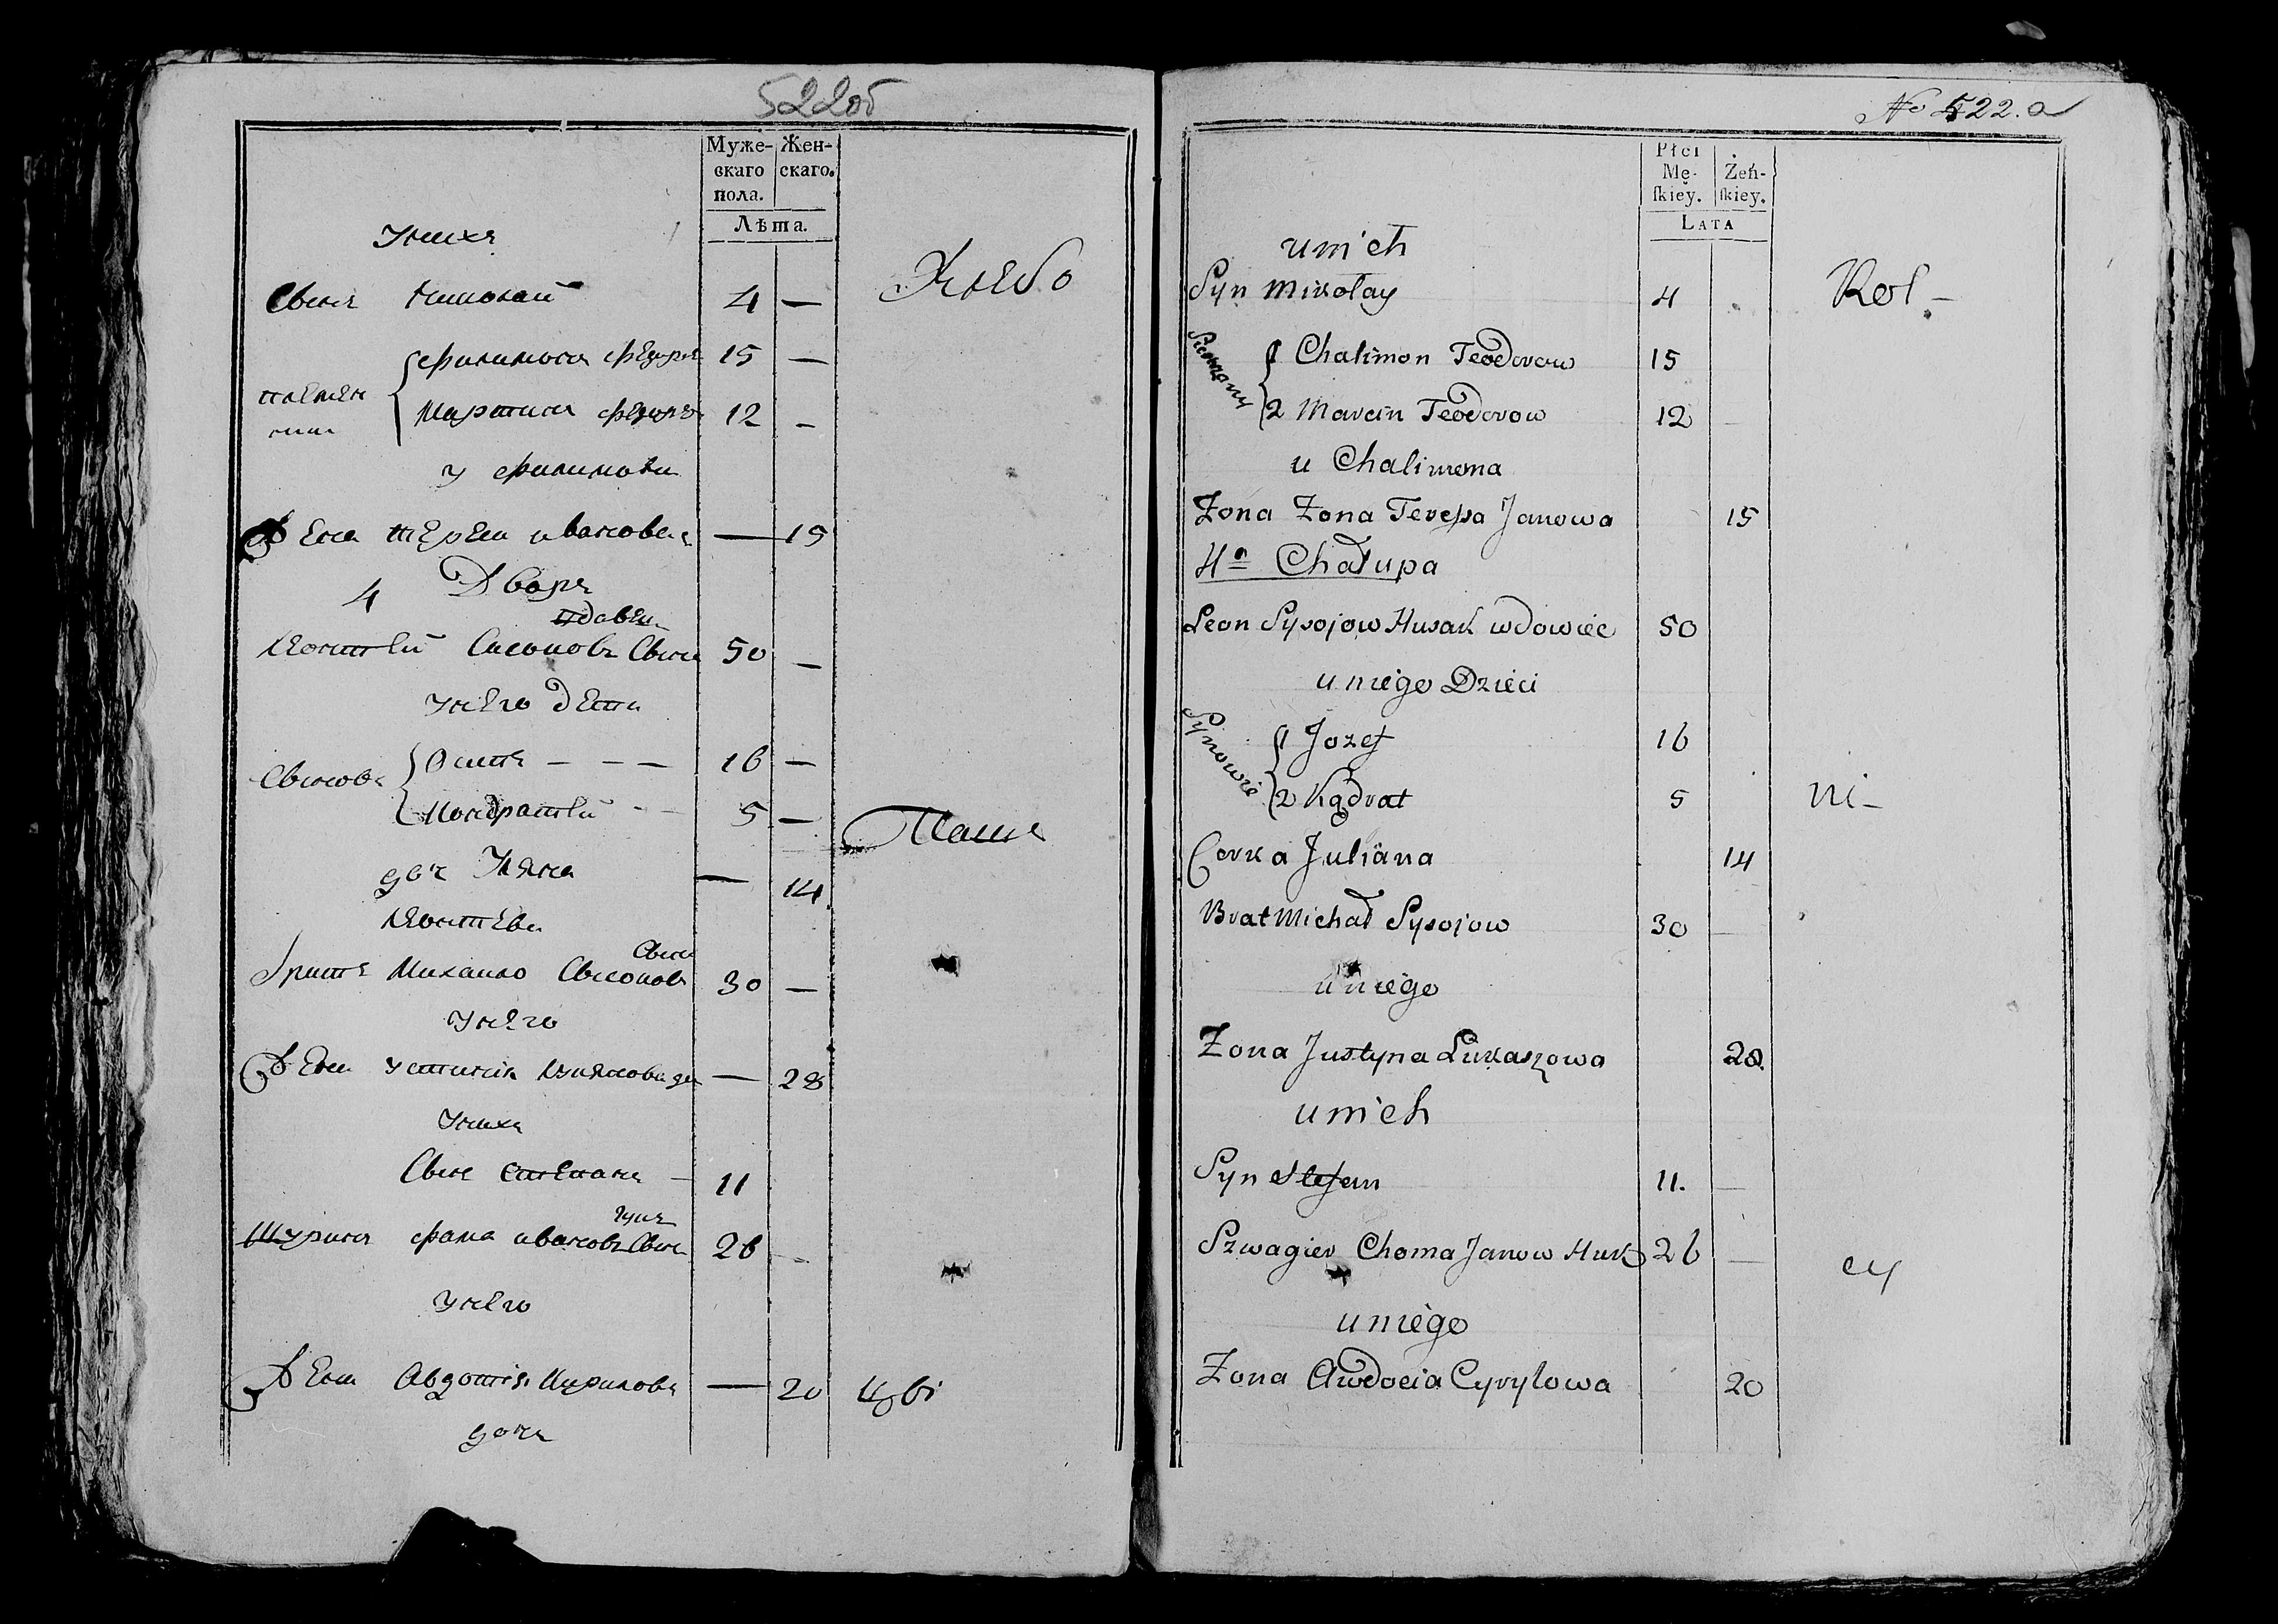 522об
Муже- Жен-
скаго скаго.
пола.
Лѣта.
Унихъ
Сынъ Николай 4 —
Хлѣбо
Филимонъ Федоров 15 —
племен
ники
Мартинъ Федоров 12 -
у Филимона
Жена Терези Иванова — 15
4 Дворъ
вдовец
Леонтей Сисоновъ Сынъ 50 —
Унего дети
Сыновя
Осипъ - - - 16 —
Кондратей - - 5 —
Паше
дочь Уляна — 14
Леонтева
Братъ Михайло Сысоновъ Сынъ 30 —
Унего
Жена Устинія — 28
Унихъ
Сынъ Степанъ - 11
Шуринъ Фома Ивановъ Сынъ 26 -
Гукъ
Унего
Жена Авдотія Кирилова — 20 Цѣ
дочь
No 522.a
Płci
Mę- Żeń-
ſkiey. ſkiey.
LATA
u nich
Syn Mikołay 4
Rol -
1 Chalimon Teodorow 15
2 Marcin Teodorow 12
u Chalimona
Zona Zona Teressa Janowa 15
4ta Chałupa
Leon Sysojow Husak wdowiec 50
u niego Dzieci
Synowie
1 Jozef 16
2 Kądrat 5
ni-
Corka Juliana 14
Brat Michał Sysojow 30
u niego
Zona Justyna Łukaszowa 28
u nich
Syn Stefan 11.
Szwagier Choma Janow Huk 26
cy
u niego
Zona Awdocia Cyryłowa 20